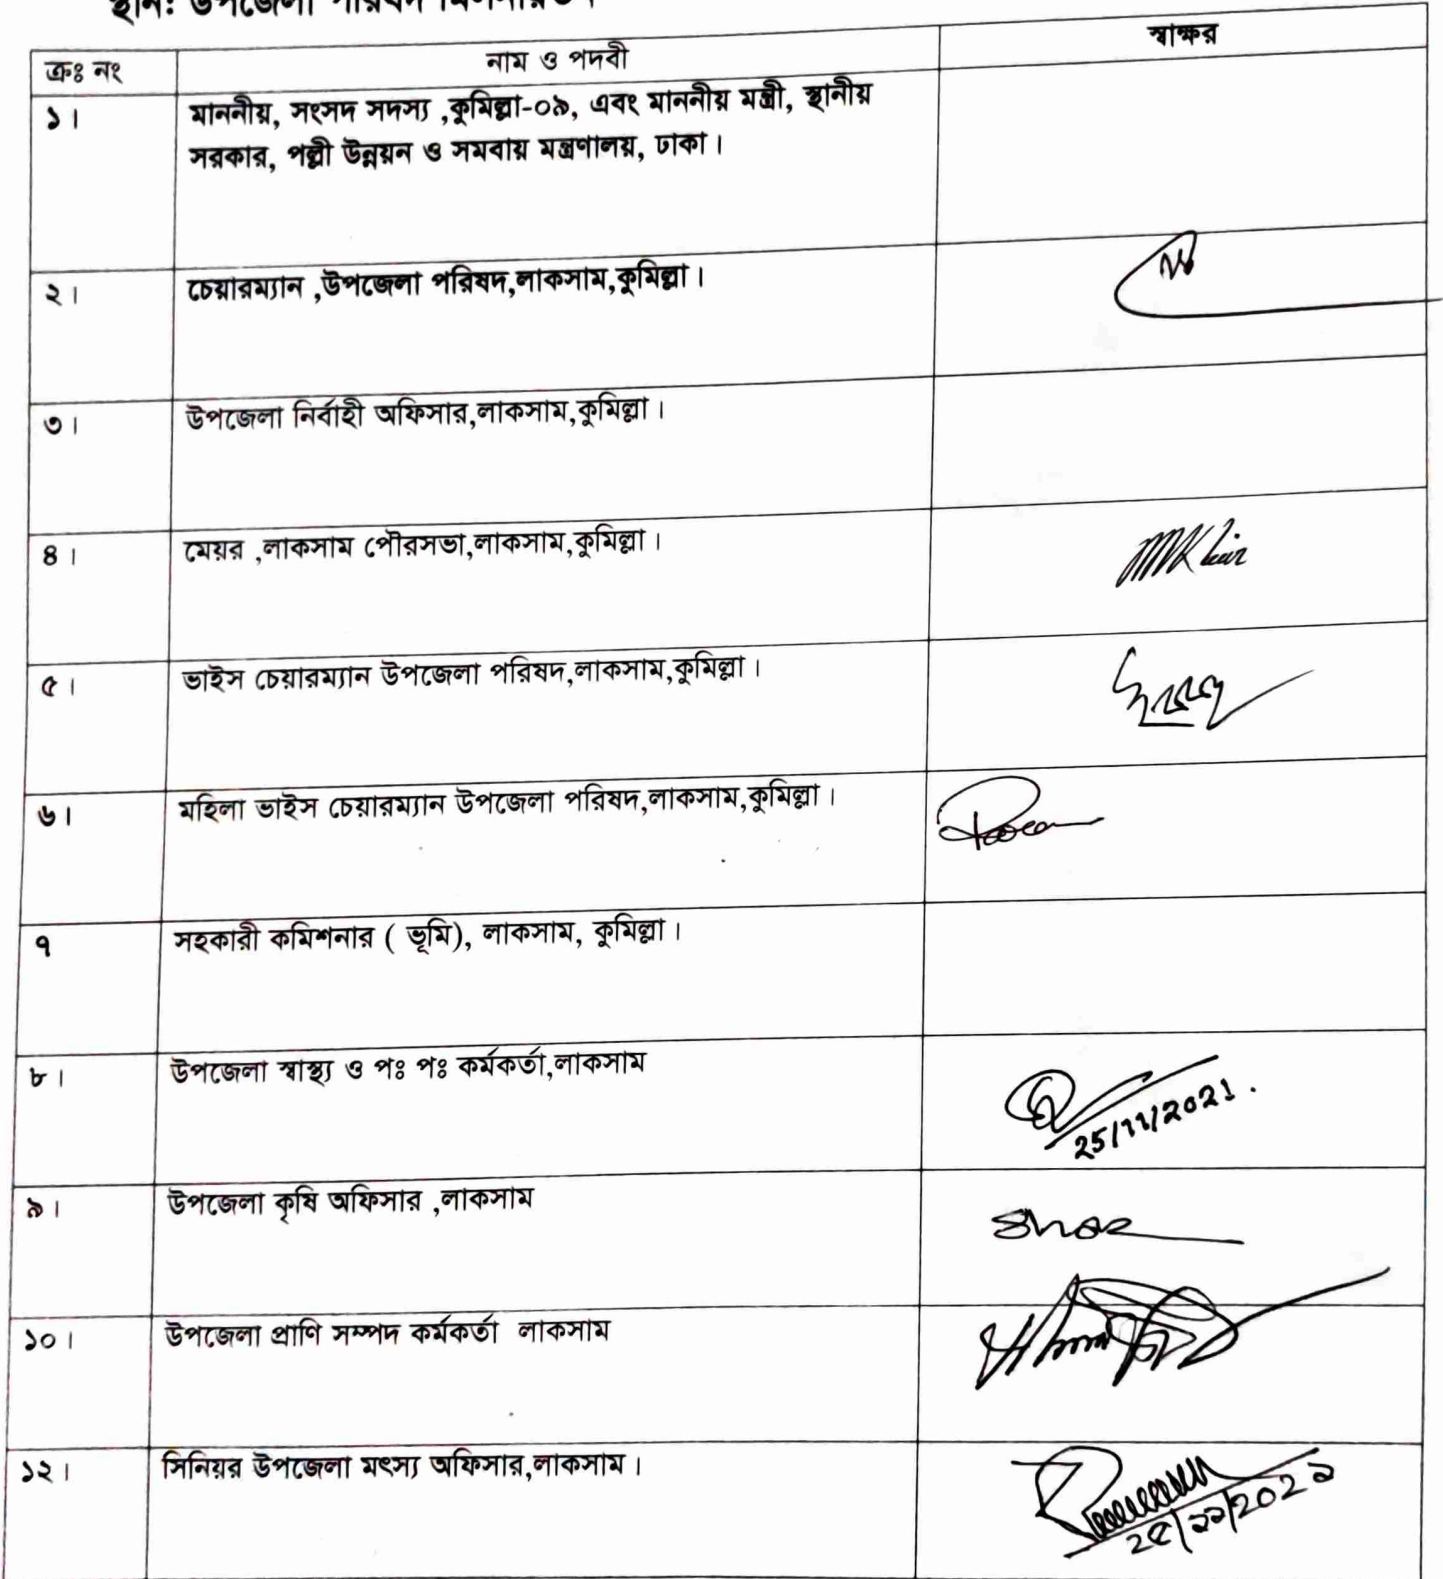 স্থান: উপজেলা পরিষদ
ক্রঃ নং নাম ও পদবী স্বাক্ষর
১। মাননীয়, সংসদ সদস্য ,কুমিল্লা-০৯, এবং মাননীয় মন্ত্রী, স্থানীয়
সরকার, পল্লী উন্নয়ন ও সমবায় মন্ত্রণালয়, ঢাকা।
২। চেয়ারম্যান ,উপজেলা পরিষদ,লাকসাম,কুমিল্লা।
৩। উপজেলা নির্বাহী অফিসার,লাকসাম,কুমিল্লা।
৪। মেয়র ,লাকসাম পৌরসভা,লাকসাম,কুমিল্লা।
৫। ভাইস চেয়ারম্যান উপজেলা পরিষদ,লাকসাম,কুমিল্লা।
৬। মহিলা ভাইস চেয়ারম্যান উপজেলা পরিষদ,লাকসাম,কুমিল্লা।
৭ সহকারী কমিশনার ( ভূমি), লাকসাম, কুমিল্লা।
৮। উপজেলা স্বাস্থ্য ও পঃ পঃ কর্মকর্তা,লাকসাম
25/11/2021.
৯। উপজেলা কৃষি অফিসার ,লাকসাম
১০। উপজেলা প্রাণি সম্পদ কর্মকর্তা লাকসাম
১২। সিনিয়র উপজেলা মৎস্য অফিসার,লাকসাম।
২৫/১১/২০২১